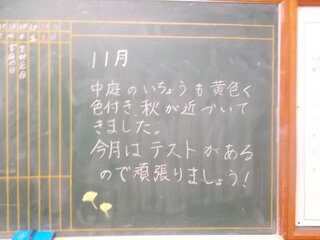 11月
中庭のいちょうも黄色く
色付き秋が近づいて
きました。
今月はテストがある
ので頑張りましょう!